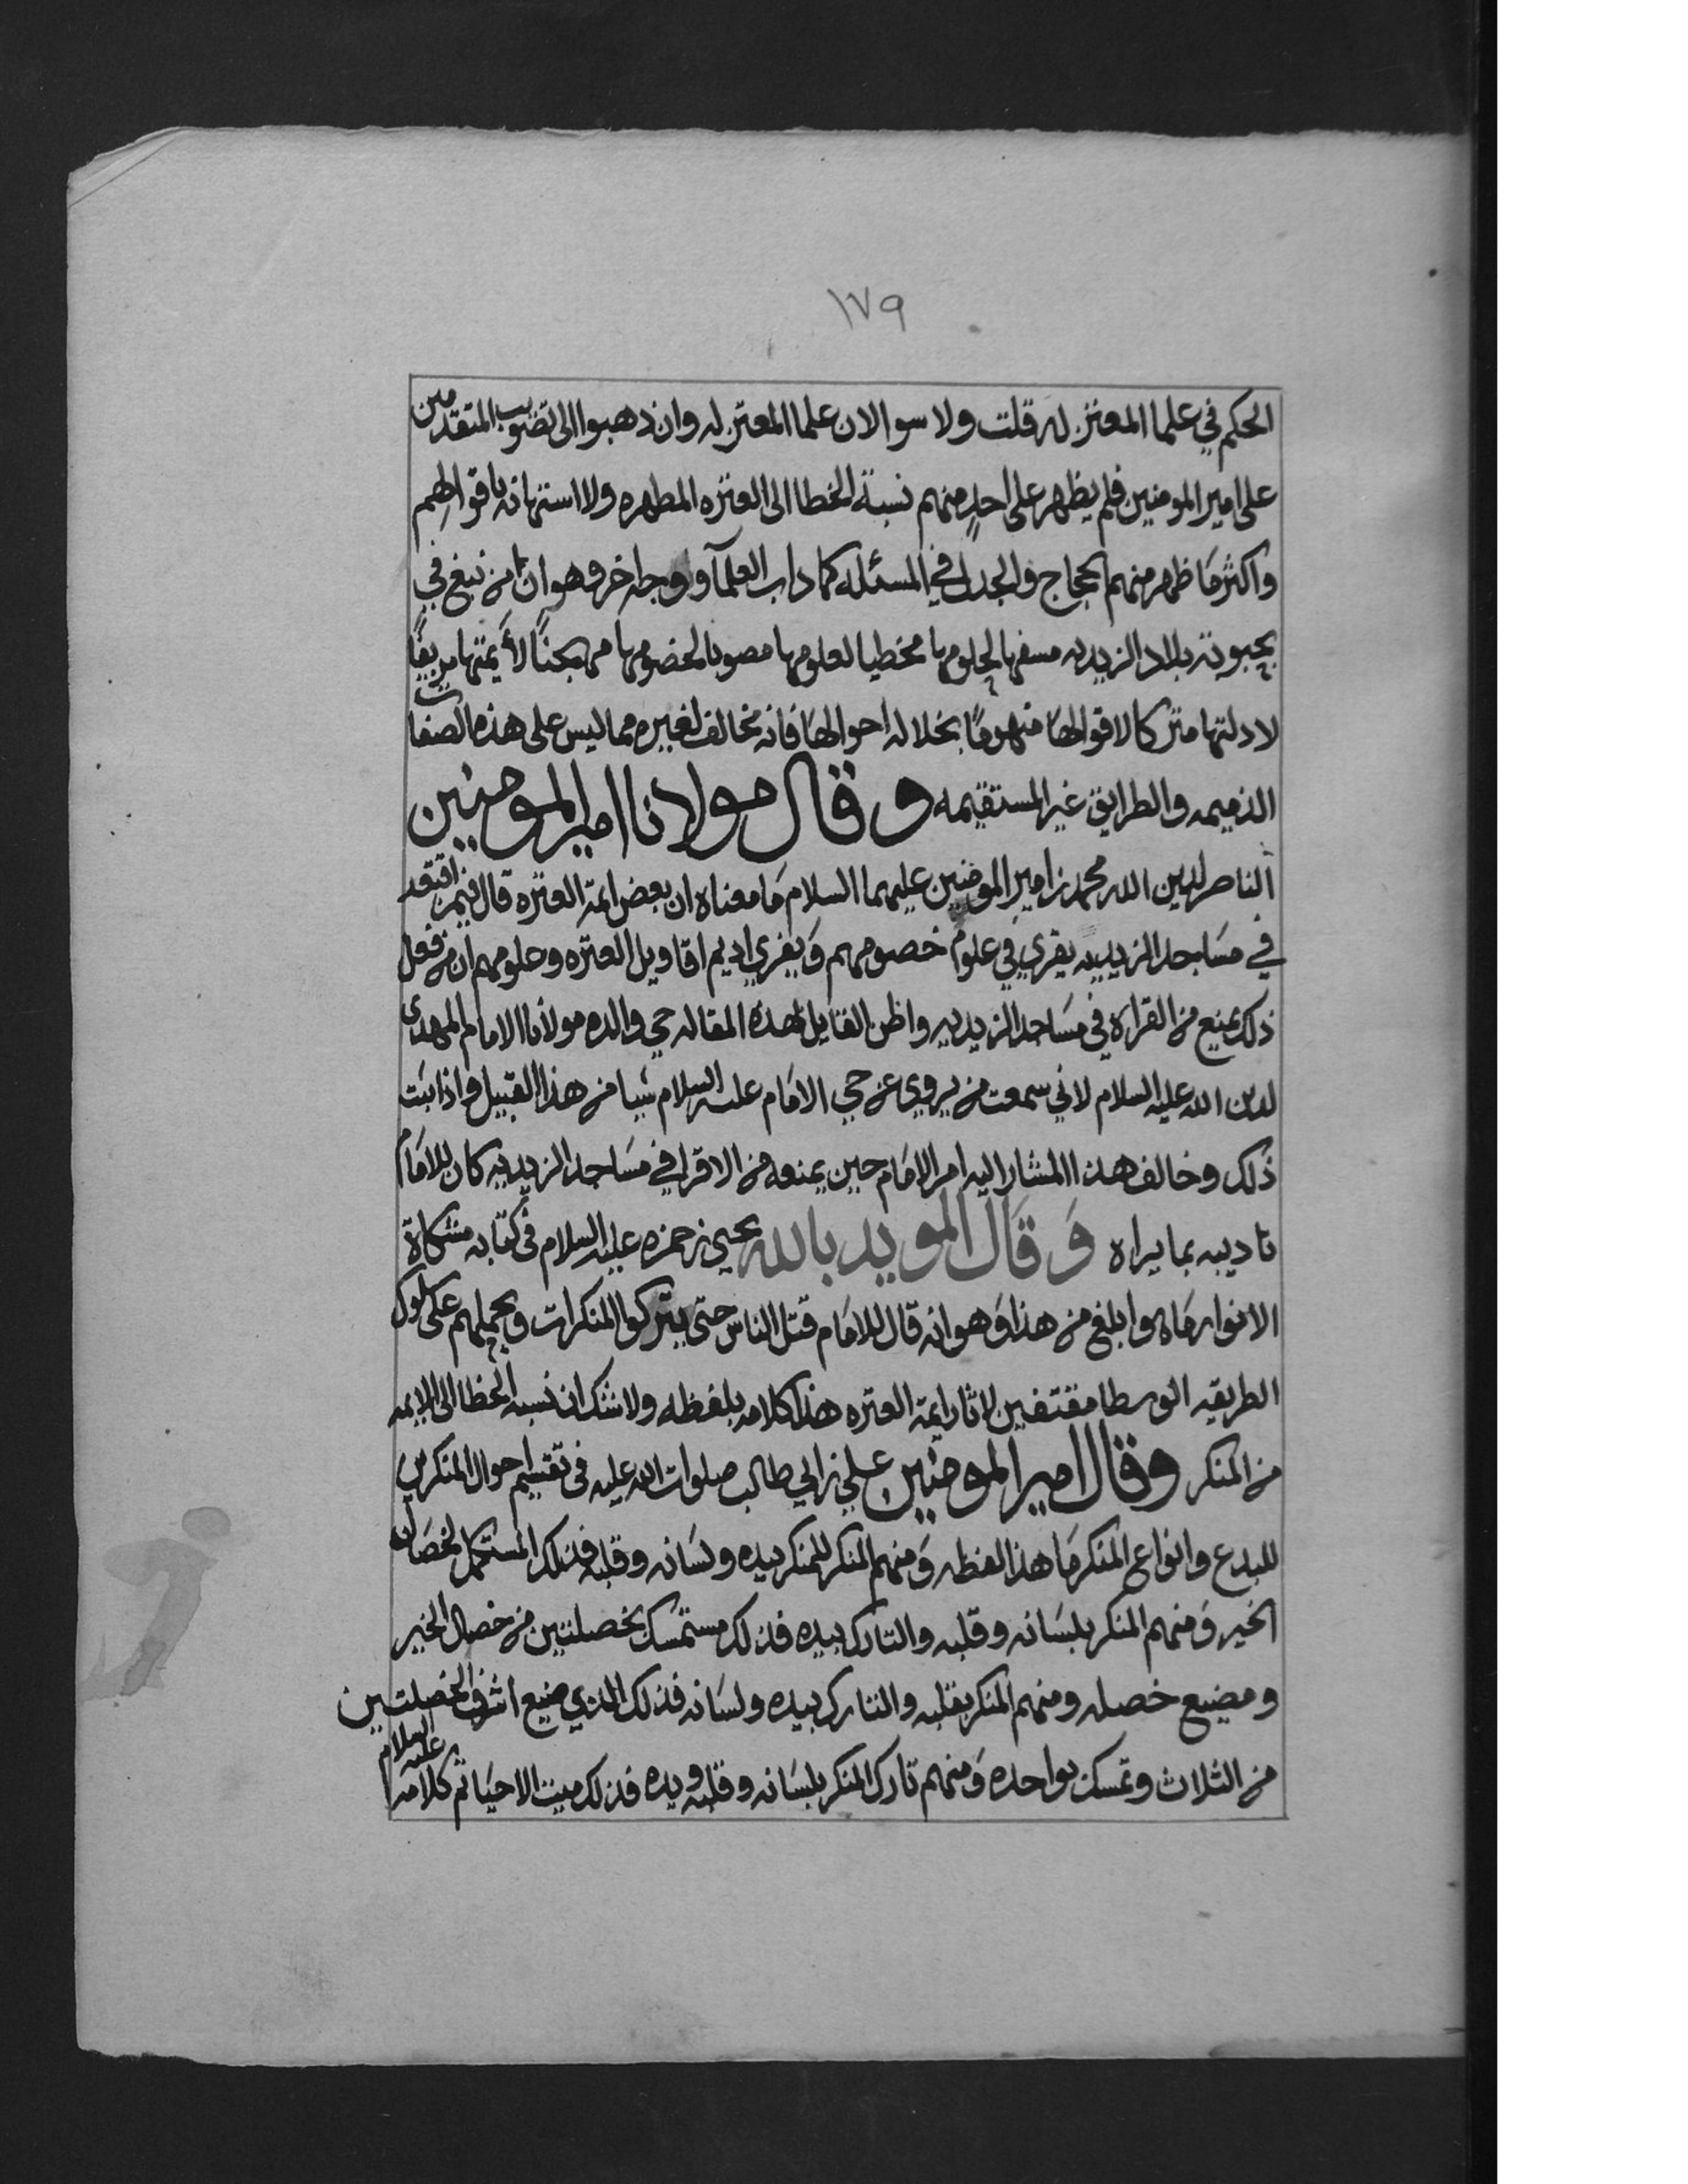 ١٧٩
الحكم في علما المعتزله قلت ولا سوا لان علما المعتزله وان ذهبوا الى تصويب المتقدمين
على امير المومنين فلم يظهر على احدٍ منهم نسبة الخطا الى العتره المطهره ولا استهانه باقوالهم
واكثر ما ظهر منهم الحجاج والجدل في المسئله كما داب العلمآ ووجه اخر وهو ان من نبغ في
بحبوحة بلاد الزيديه مسفها لحلومها مخطيا لعلومها مصوبا لخصومها مهجنًا لأيمتها مزيفًا
لادلتها متركا لاقوالها بخلاله احوالها فانه مخالف لغيره مما ليس على هذه الصفات
الذميمه والطرايق غير المستقيمه وقال مولانا امير المومنين
الناصر لدين الله محمد بن امير المومنين عليهما السلام ما معناه ان بعض ايمة العتره قال فيمن اقتعد
في مساجد الزيديه يقري في علوم خصومهم ويفري اديم اقاويل العتره وحلومهم ان من فعل
ذلك يمنع من القراه في مساجد الزيديه واظن القايل لهذه المقاله حي والده مولانا الامام المهدي
لدين الله عليه السلام لاني سمعت من يروي عن حي الامام عليه السلام شيا من هذا القبيل واذا ثبت
ذلك وخالف هذا المشار اليه امر الامام حين يمنعه من الاقرا في مساجد الزيديه كان للامام
تاديبه بما يراه وقال المويد بالله يحيى بن حمزه عليه السلام في كتابه مشكاة
الانوار ما هو ابلغ من هذا وهو انه قال للامام قتل الناس حتى يتركوا المنكرات ويحملهم على سلوك
الطريقه الوسطا مقتفين لاثار ايمة العتره هذا كلامه بلفظه ولا شك ان نسبه الخطا الى الايمه
من المنكر وقال امير المومنين علي بن ابي طالب صلوات الله عليه في تقسيم احوال المنكرين
للبدع وانواع المنكر ما هذا لفظه ومنهم المنكر للمنكر بيده ولسانه وقلبه فذلك المستكمل لخصال
الخير ومنهم المنكر بلسانه وقلبه والتارك بيده فذلك مستمسك بخصلتين من خصال الخير
ومضيع خصله ومنهم المنكر بقلبه والتارك بيده ولسانه فذلك الذي ضيع اشرف الخصلتين
من الثلاث وتمسك بواحده ومنهم تارك المنكر بلسانه وقلبه ويده فذلك ميت الاحيا ثم كلامه عليه السلام